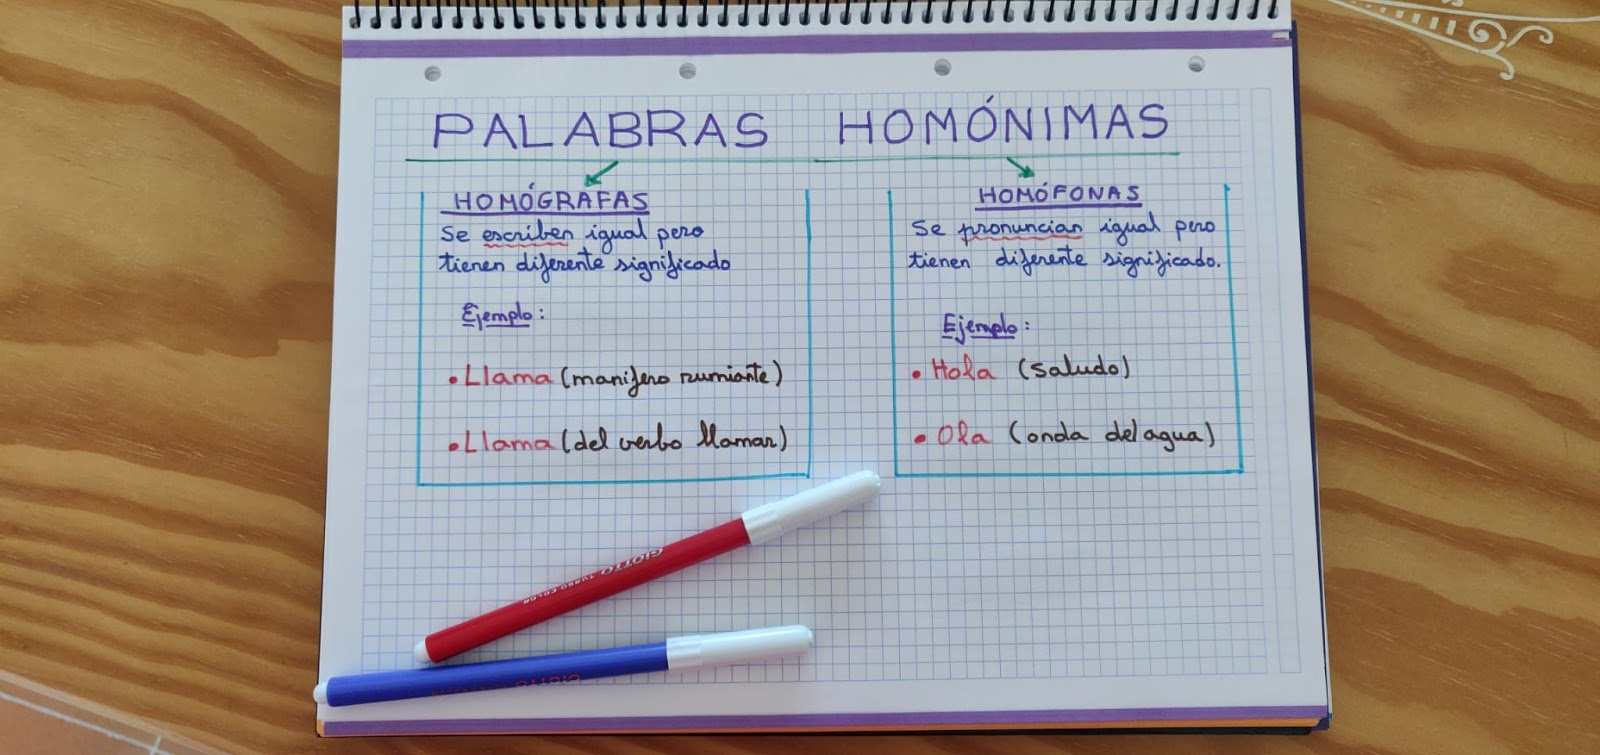 PALABRAS HOMÓNIMAS
HOMÓGRAFAS
Se escriben igual pero
tienen diferente significado
Ejemplo:
• Llama (manifero rumiante)
• Llama (del verbo llamar)
HOMÓFONAS
Se pronuncian igual pero
tienen diferente significado.
Ejemplo:
• Hola (saludo)
• Ola (onda del agua)
GIOTTO TURBO COLOR
GIOTTO